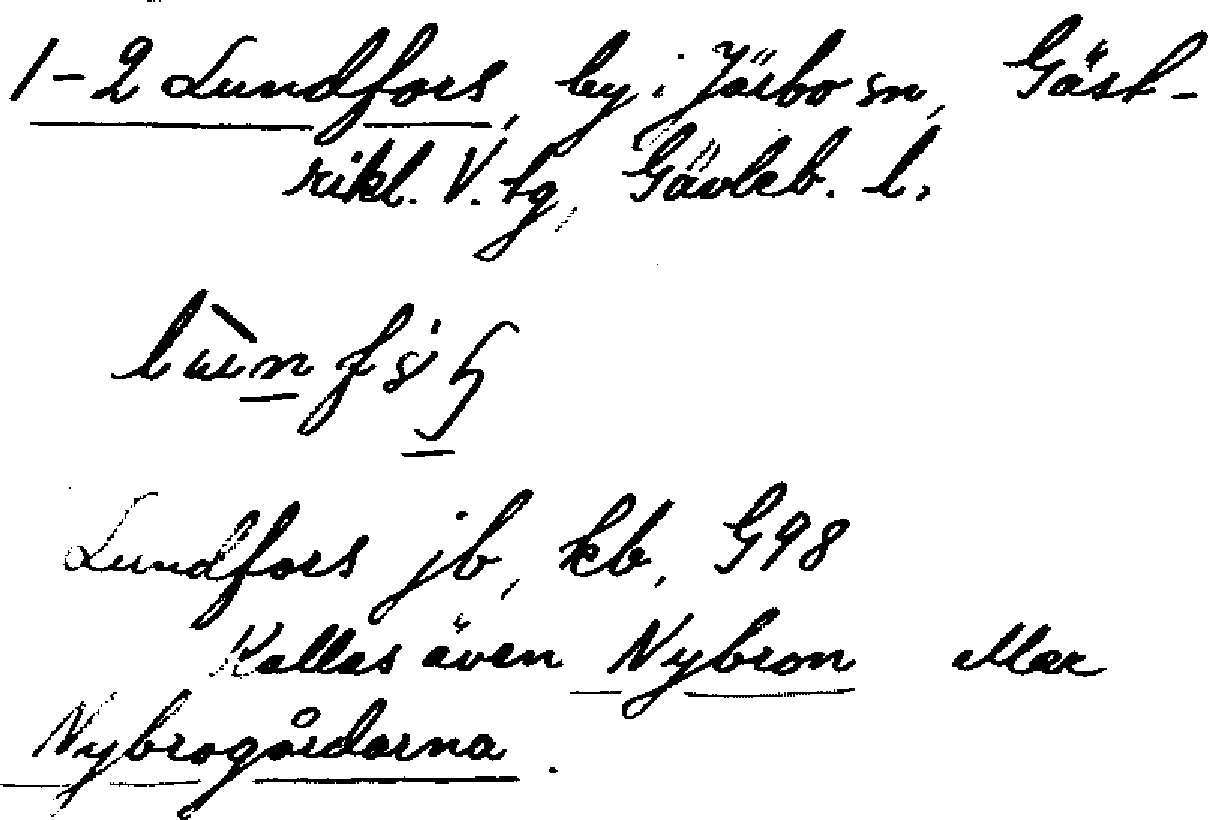 1-2 Lundfors, by i Järbo sn, Gäst-
rikl. V. tg, Gävleb. l.
Lundfors jb, kb, G98
Kallas även Nybron eller
Nybrogårdarna.